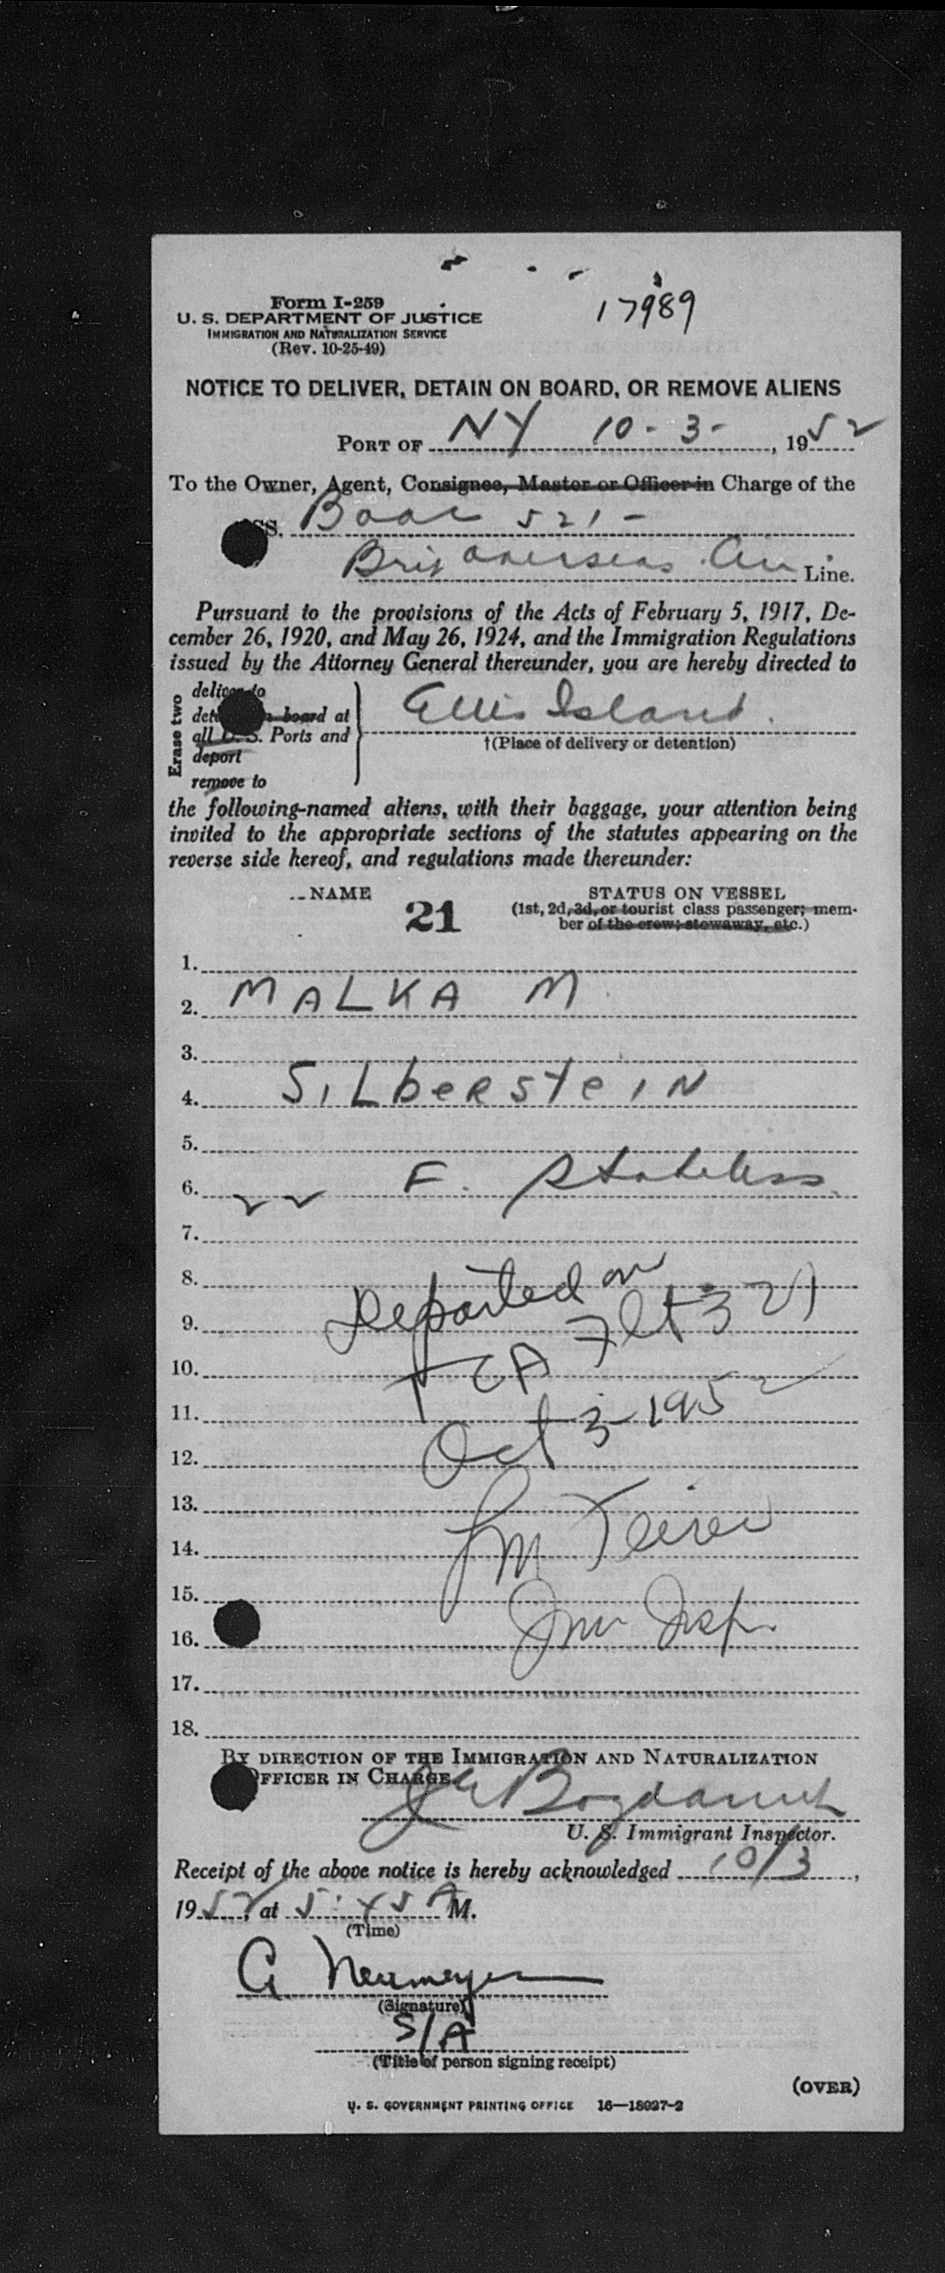 Form I-259
U. S. DEPARTMENT OF JUSTICE
IMMIGRATION AND NATURALIZATION SERVICE
(Rev. 10-25-49)
17989
NOTICE TO DELIVER, DETAIN ON BOARD, OR REMOVE ALIENS
PORT OF NY 10-3-, 1952
To the Owner, Agent, Consignee, Master or Officer in Charge of the
SS. Boac 521-
Brit Overseas Air Line.
Pursuant to the provisions of the Acts of February 5, 1917, De-
cember 26, 1920, and May 26, 1924, and the Immigration Regulations
issued by the Attorney General thereunder, you are hereby directed to
Erase two
deliver to
detain on board at
all U. S. Ports and
deport
remove to
Ellis Island.
†(Place of delivery or detention)
the following-named aliens, with their baggage, your attention being
invited to the appropriate sections of the statutes appearing on the
reverse side hereof, and regulations made thereunder:
NAME
21
STATUS ON VESSEL
(1st, 2d, 3d, or tourist class passenger; mem-
ber of the crew; stowaway, etc.)
1.
2. MALKA M
3.
4. SILbeRsteIN
5.
6. 22 F. Stateless
7.
8. Departed on
9. Flt 321
10. TCA
11. Oct 3-1952
12.
13.
14.
15.
16. Imm Insp.
17.
18.
BY DIRECTION OF THE IMMIGRATION AND NATURALIZATION
OFFICER IN CHARGE
U. S. Immigrant Inspector.
Receipt of the above notice is hereby acknowledged 10/3,
1952, at 5:45 AM.
(Time)
G Neumeyer
(Signature)
S/A
(Title of person signing receipt)
(OVER)
U. S. GOVERNMENT PRINTING OFFICE 16—18027-2